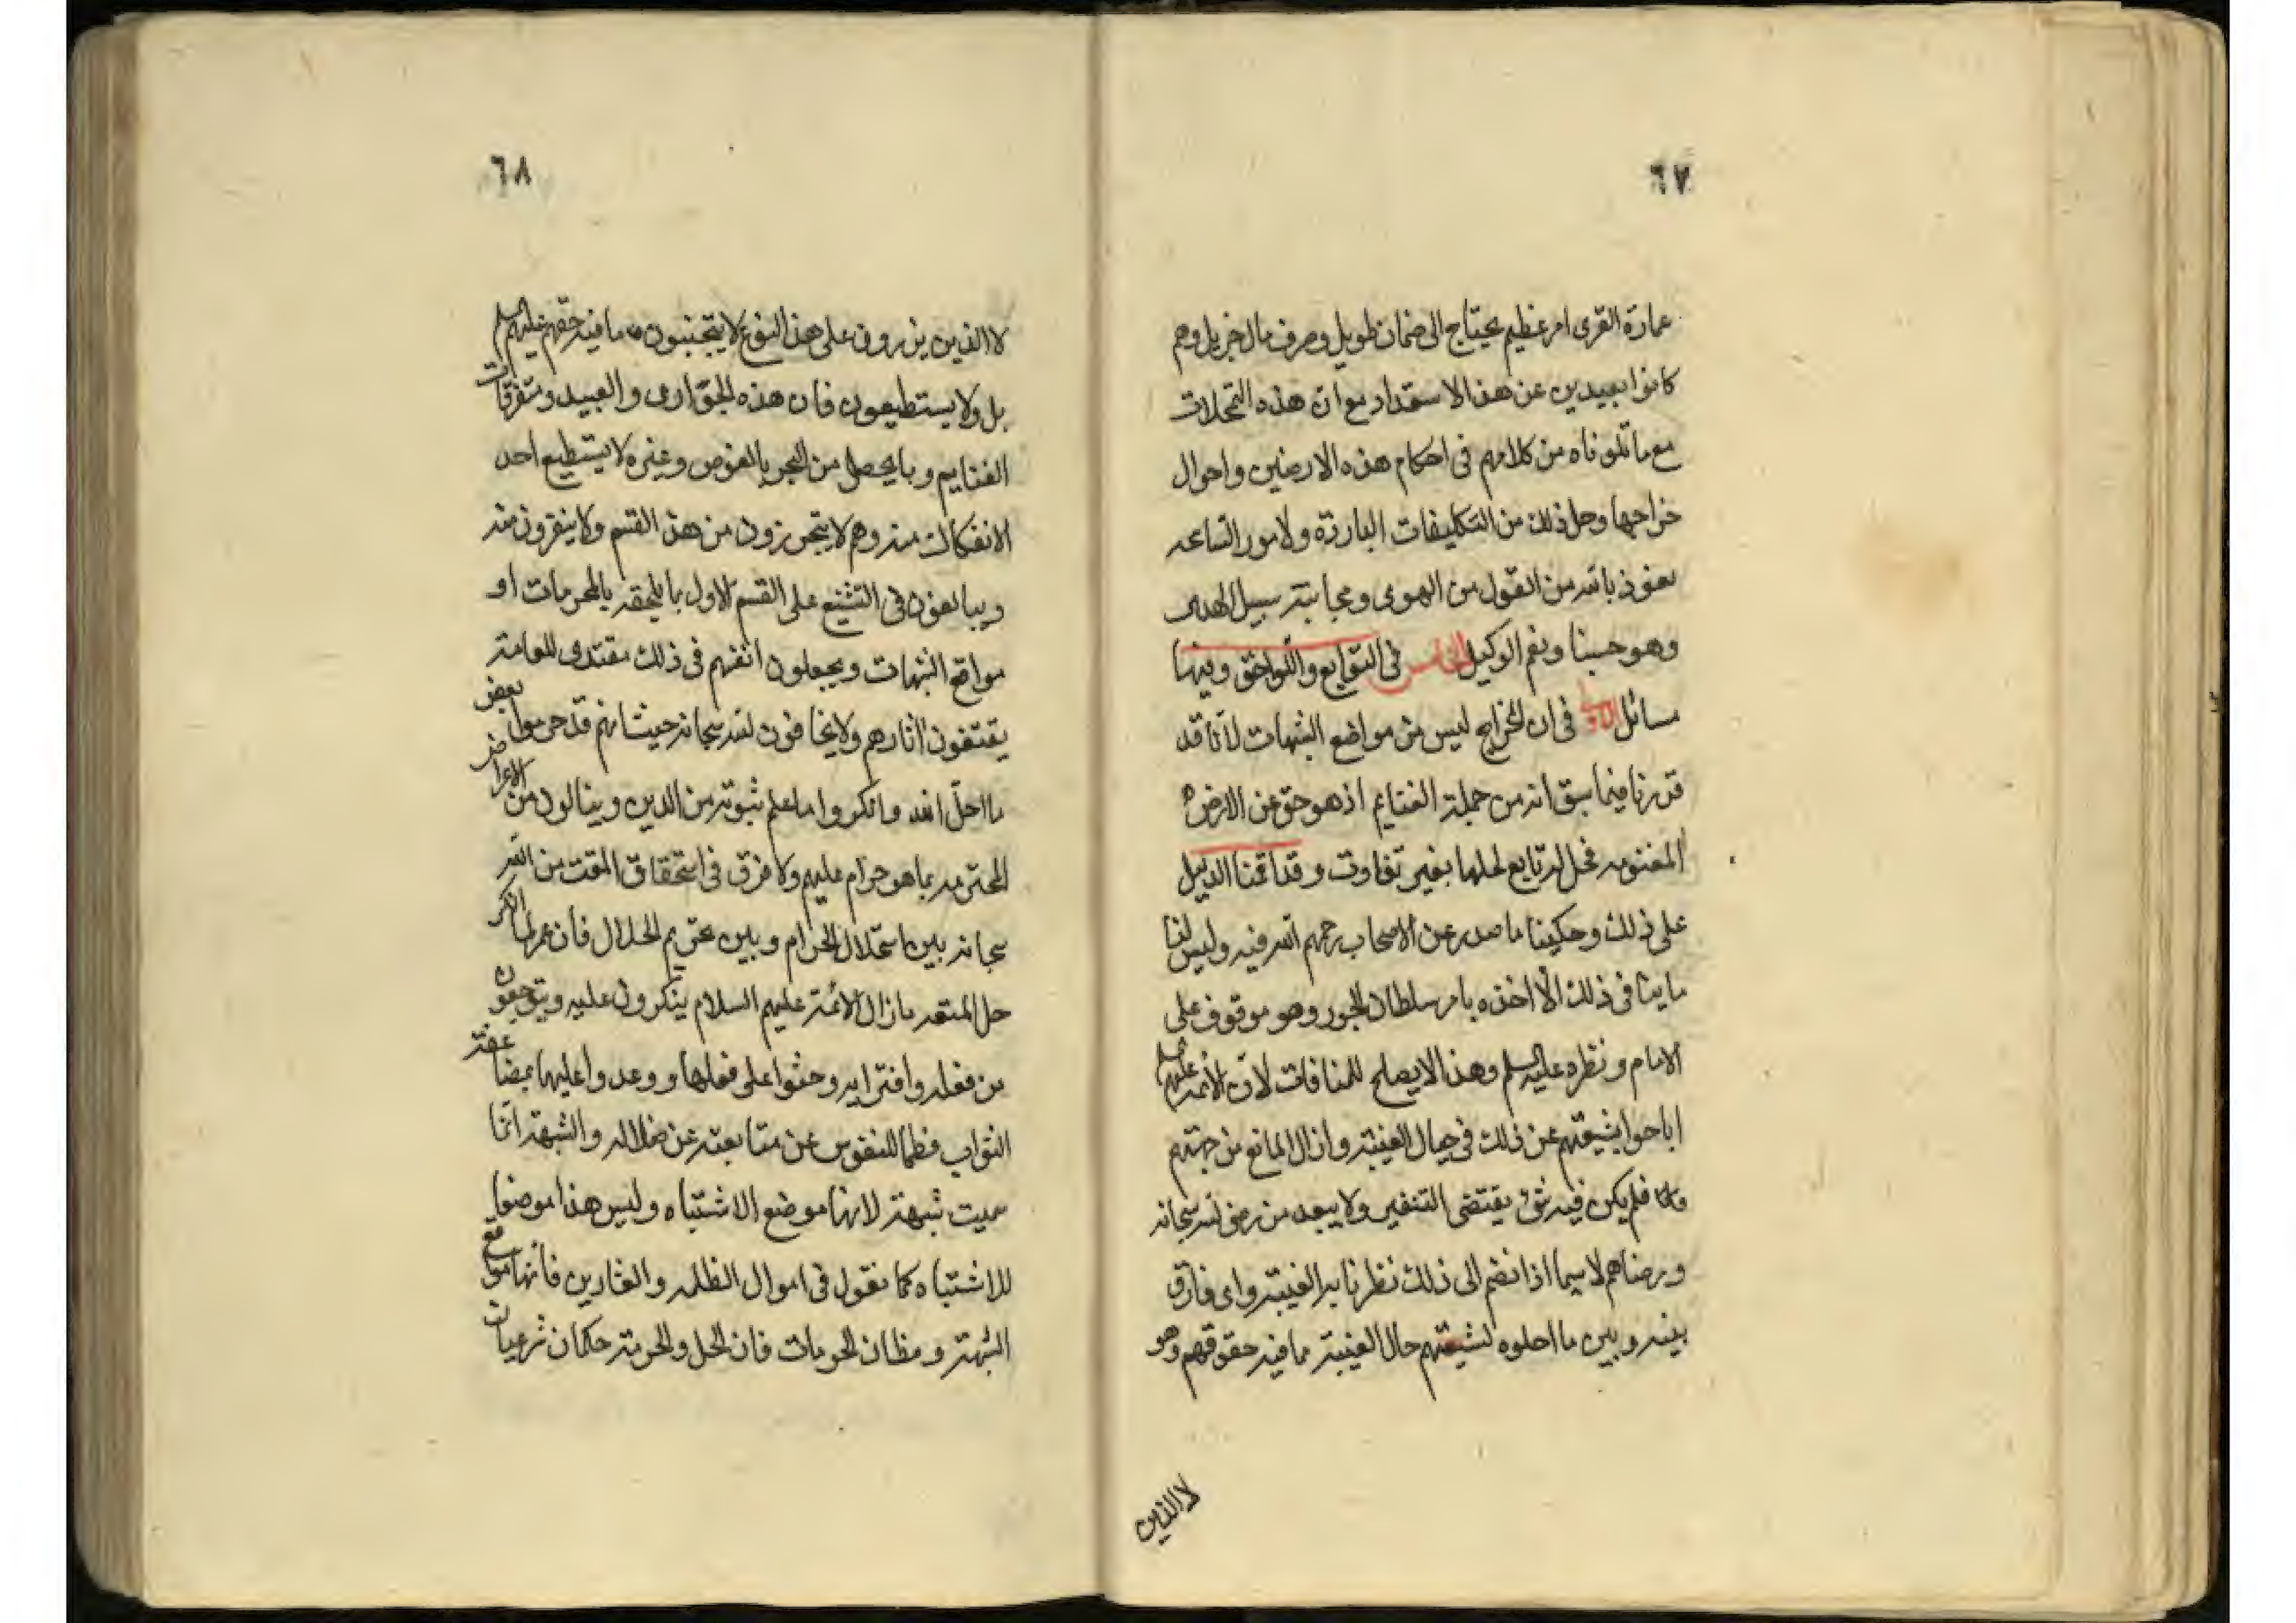 ٦٧
عمارة القرى امر عظيم يحتاج الى ضمان طويل وصرف مال جزيل وهم
كانوا بعيدين عن هذا الاستمداد مع ان هذه التمحلات
مع ما تلوناه من كلامهم في احكام هذه الارضين واحوال
خراجها وحل ذلك من التكليفات الباردة ولامور
نعوذ بالله من القول من الهوى ومجانبة سبيل الهدى
وهو حسبنا ونعم الوكيل الخامس في التوابع واللواحق وفيها
مسائل الاولى في ان الخراج ليس من مواضع الشبهات لانا قد
قررنا فيما سبق انه من جملة الغنايم اذ هو حق عن الارض
المغنومه فحله تابع لحلها بغير تفاوت وقد اقمنا الدليل
على ذلك وحكينا ما صدر عن الاصحاب رحمهم الله فيه وليس لنا
ما ينافى ذلك الا اخذه بامر سلطان الجور وهو موقوف على
الامام ونظره عليه السلم وهذا لا يصلح للمنافات لان الائمة عليهم السلم
اباحوا لشيعتهم عن ذلك في حال الغيبة وازال المانع من جهتهم
فلم يكن فيه شئ يقتضى التنفير ولا يبعد من رضى الله سبحانه
ورضاهم لاسيما اذا انضم الى ذلك نظر نايب الغيبة واى فارق
بينه وبين ما احلوه لشيعتهم حال الغيبة مما فيه حقوقهم وهو
لا الذين
٦٨
لا الذين يزرون على هذا النوع لا يتجنبون ما فيه حقهم عليهم السلم
بل ولا يستطيعون فان هذه الجوارى والعبيد ومتفرقات
الغنايم وما يحصل من البحر بالغوص وغيره لا يستطيع احد
الانفكاك منه وهم لا يتحرزون من هذا القسم ولا ينفرون منه
ويبالغون في التشنيع على القسم الاول بما يلحقه بالمحرمات او
مواقع الشبهات ويجعلون انفسهم في ذلك مقتدى للعامة
يقتفون اثارهم ولا يخافون الله سبحانه حيث انهم قد حرموا بعض
ما احل الله وانكروا ما علم ثبوته من الدين وينالون من الاعراض
المحترمه بما هو حرام عليهم ولا فرق في استحقاق المقت من الله
سبحانه بين استحلال الحرام وبين تحريم الحلال فان عمر لما انكر
حل المتعه ما زال الائمة عليهم السلام ينكرون عليه ويتوجعون
من فعله وافترايه وحثوا على فعلها ووعدوا عليها بمضاعفة
الثواب فطما للنفوس عن متابعته عن ضلاله والشبهة انما
سميت شبهة لانها موضع الاشتباه وليس هذا موضعا
للاشتباه كما نقول في اموال الظلمه والعشارين فانها مواقع
الشبهة ومظان الحرمات فان الحل والحرمة حكمان شرعيان